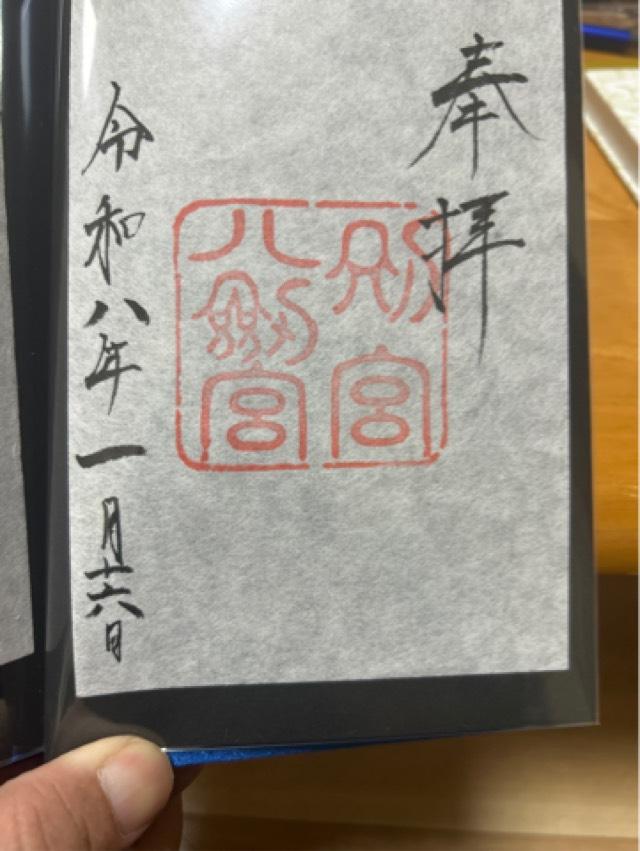 奉拝
別宮
八剣宮
令和八年一月十六日